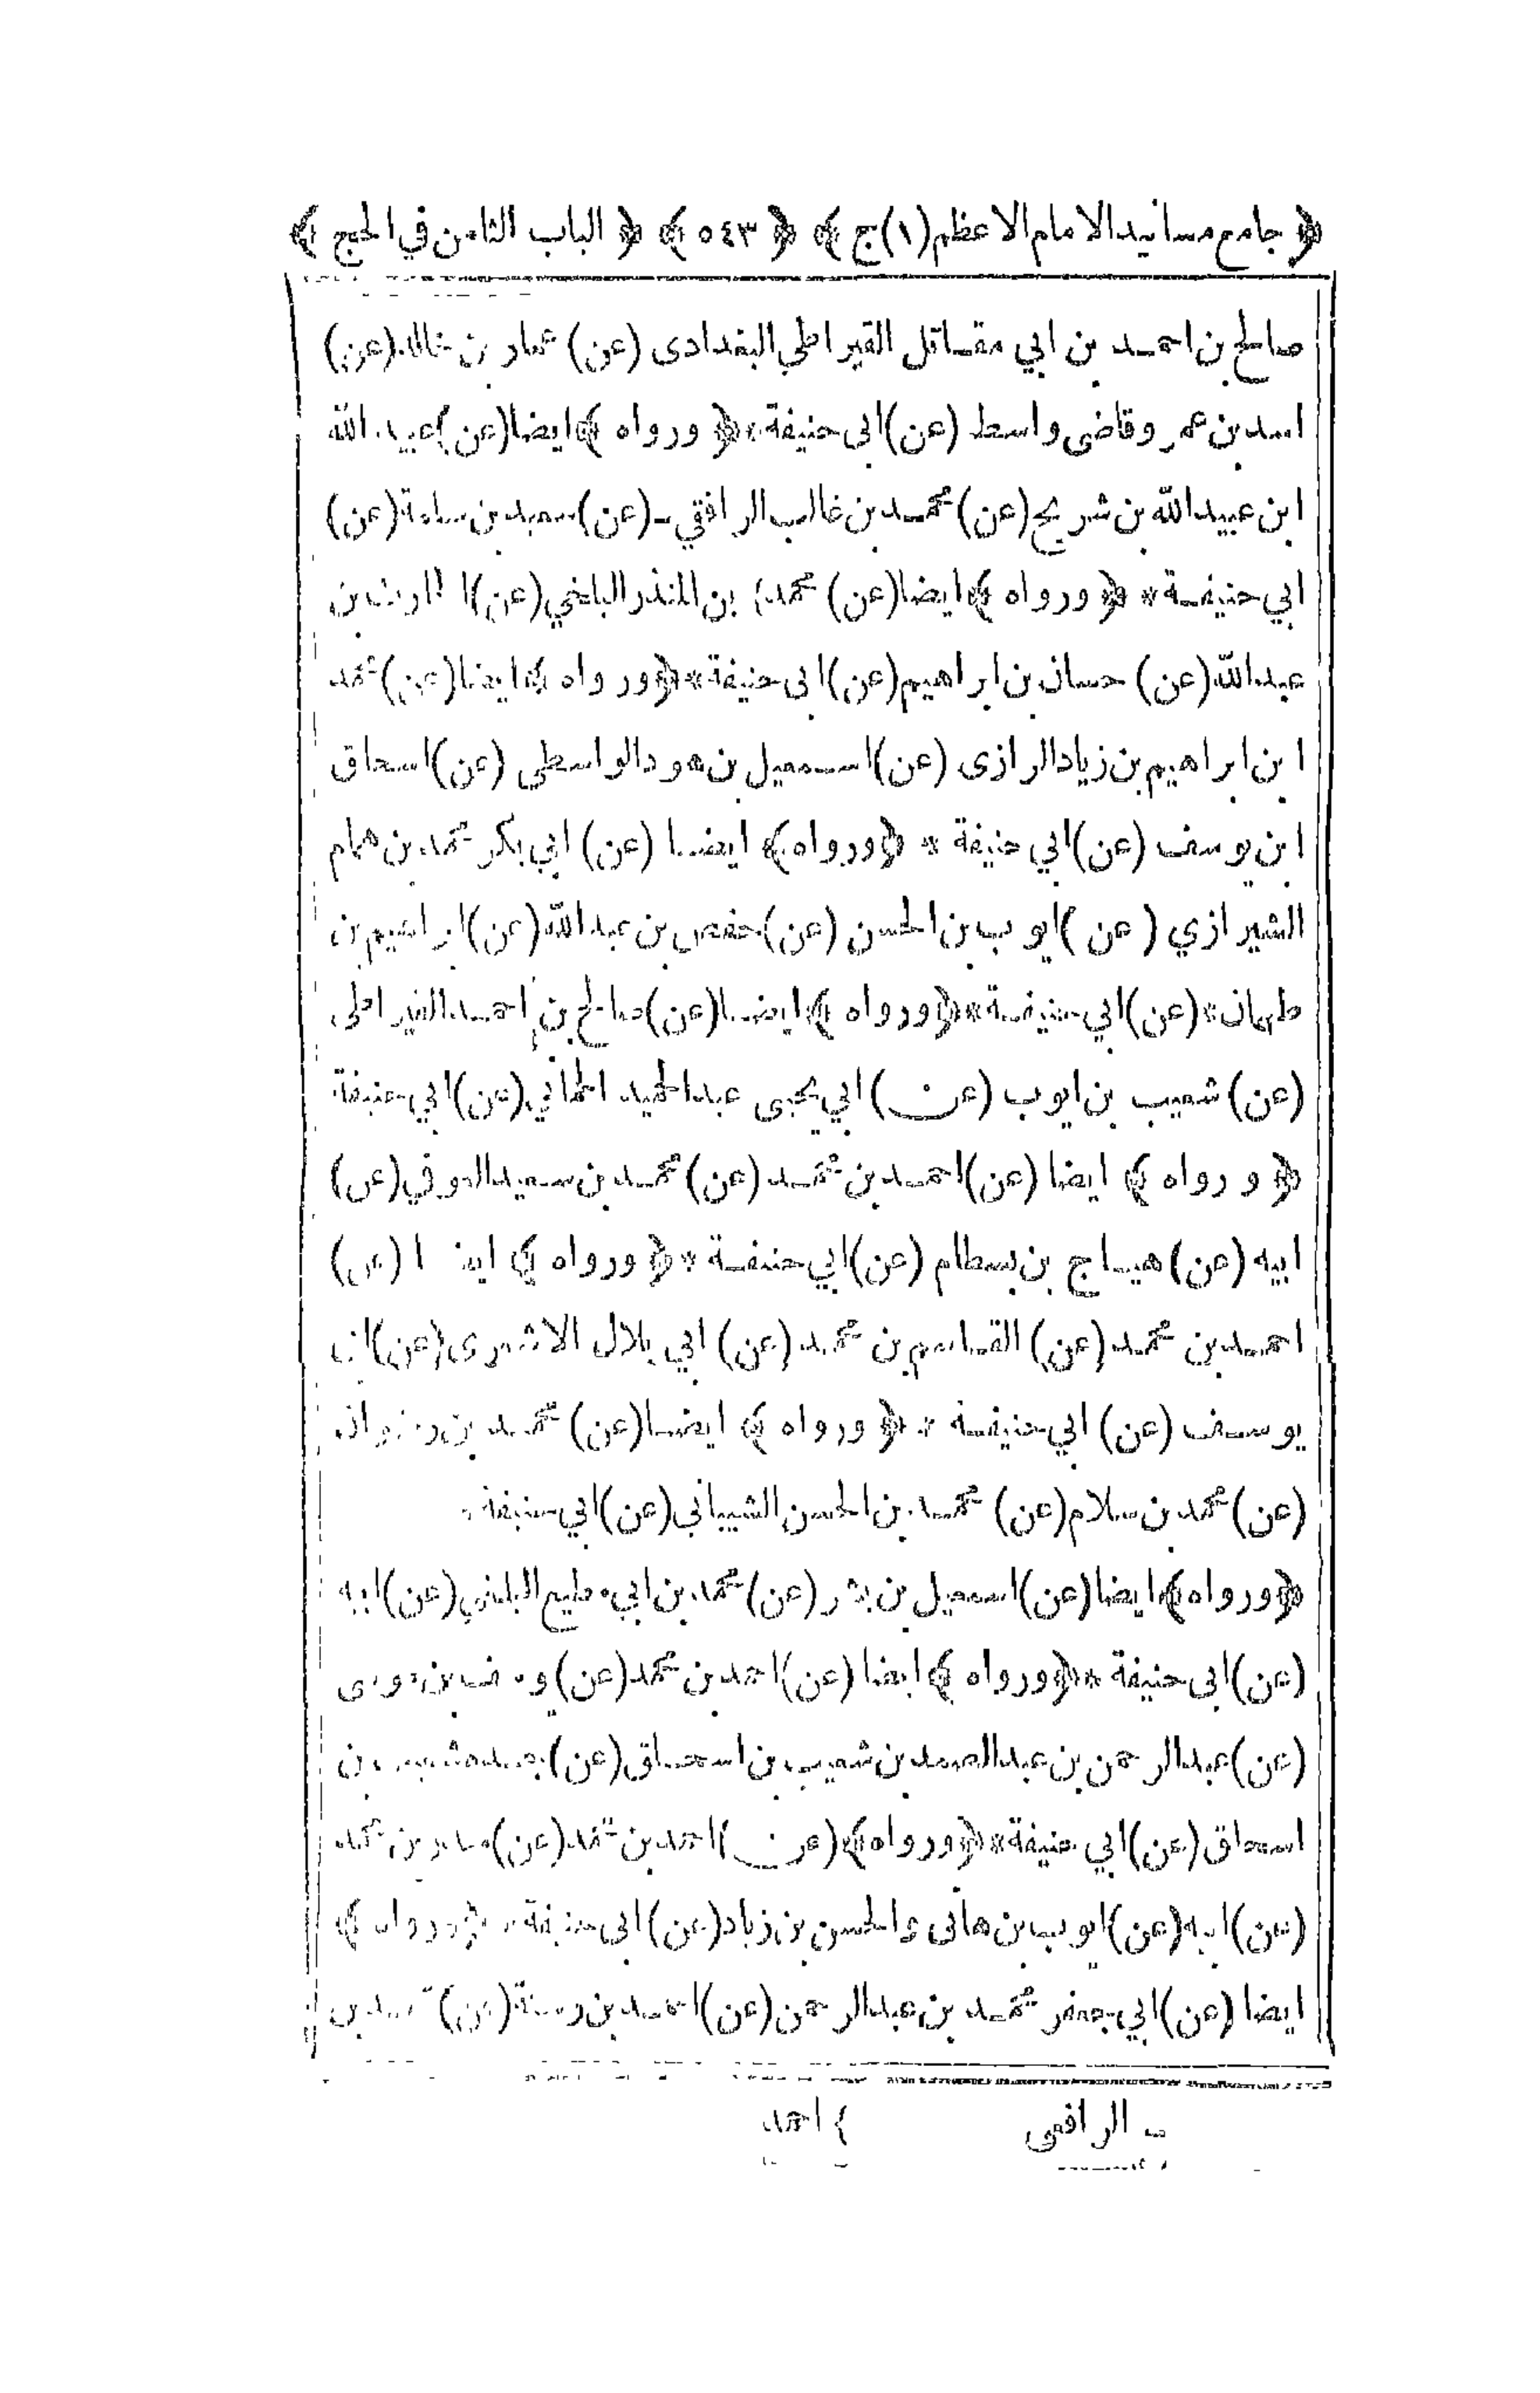 ﴿ جامع مسانيد الامام الاعظم (١) ج ﴾ ﴿ ٥٤٣ ﴾ ﴿ الباب الثامن في الحج ﴾
صالح بن احمد بن ابي مقاتل القيراطي البغدادى (عن) عمار بن خالد (عن)
اسد بن عمرو قاضى واسط (عن) ابى حنيفة * ﴿ ورواه ﴾ ايضا (عن) عبيد الله
ابن عبيد الله بن شريح (عن) محمد بن غالب الرافقي ـ (عن) سعيد بن سلمة (عن)
ابي حنيفة * ﴿ ورواه ﴾ ايضا (عن) محمد بن المنذر البلخي (عن) بن
عبد الله (عن) حسان بن ابراهيم (عن) ابى حنيفة * ﴿ ورواه ﴾ ايضا (عن) محمد
ابن ابراهيم بن زياد الرازى (عن) اسمعيل بن هود الواسطي (عن) اسحاق
ابن يوسف (عن) ابي حنيفة * ﴿ ورواه ﴾ ايضا (عن) ابي بكر محمد بن همام
الشيرازي (عن) ايوب بن الحسن (عن) حفص بن عبد الله (عن) ابراهيم بن
طهمان * (عن) ابي حنيفة * ﴿ ورواه ﴾ ايضا (عن) صالح بن احمد القيراطى
(عن) شعيب بن ايوب (عن) ابي يحيى عبد الحميد الحماني (عن) ابي حنيفة
﴿ ورواه ﴾ ايضا (عن) احمد بن محمد (عن) محمد بن سعيد العوفي (عن)
ابيه (عن) هياج بن بسطام (عن) ابي حنيفة * ﴿ ورواه ﴾ ايضا (عن)
احمد بن محمد (عن) القاسم بن محمد (عن) ابي بلال الاشعرى (عن) ابى
يوسف (عن) ابي حنيفة * ﴿ ورواه ﴾ ايضا (عن) محمد بن رضوان
(عن) محمد بن سلام (عن) محمد بن الحسن الشيباني (عن) ابي حنيفة *
﴿ ورواه ﴾ ايضا (عن) اسمعيل بن بشر (عن) محمد بن ابي مطيع البلخي (عن) ابيه
(عن) ابى حنيفة * ﴿ ورواه ﴾ ايضا (عن) احمد بن محمد (عن) بن موسى
(عن) عبد الرحمن بن عبد الصمد بن شعيب بن اسحاق (عن) جده شعيب بن
اسحاق (عن) ابي حنيفة * ﴿ ورواه ﴾ (عن) احمد بن محمد (عن) بن محمد
(عن) ابيه (عن) ايوب بن هانى والحسن بن زياد (عن) ابى حنيفة * ﴿ ورواه ﴾
ايضا (عن) ابي جعفر محمد بن عبد الرحمن (عن) احمد بن رستة (عن) محمد بن
ـ الرافعى } احمد